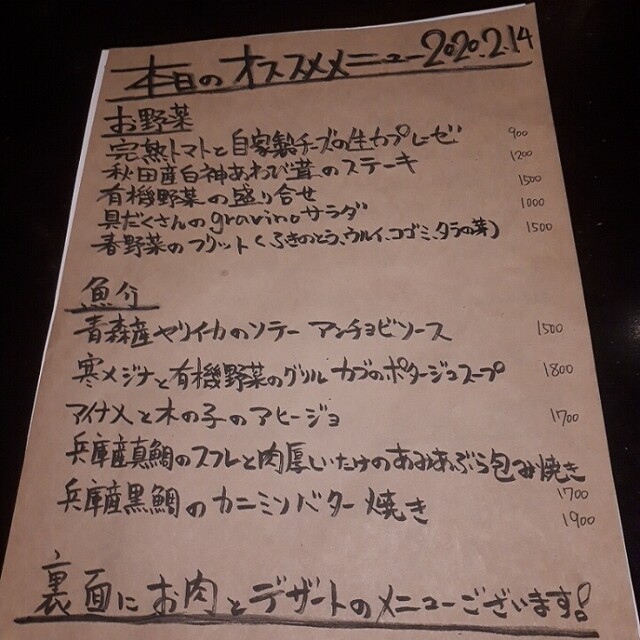 本日のオススメメニュー2020.2.14
お野菜
完熟トマトと自家製チーズの生カプレーゼ 900
秋田産白神あわび茸のステーキ 1200
有機野菜の盛り合せ 1500
具だくさんのgravinoサラダ 1000
春野菜のフリット(ふきのとう、ウルイ、コゴミ、タラの芽) 1500
魚介
青森産ヤリイカのソテー アンチョビソース 1500
寒メジナと有機野菜のグリル カブのポタージュスープ 1800
アイナメと木の子のアヒージョ 1700
兵庫産真鯛のスフレと肉厚しいたけのあみあぶら包み焼き
1700
兵庫産黒鯛のカニミソバター焼き 1900
裏面にお肉とデザートのメニューございます!